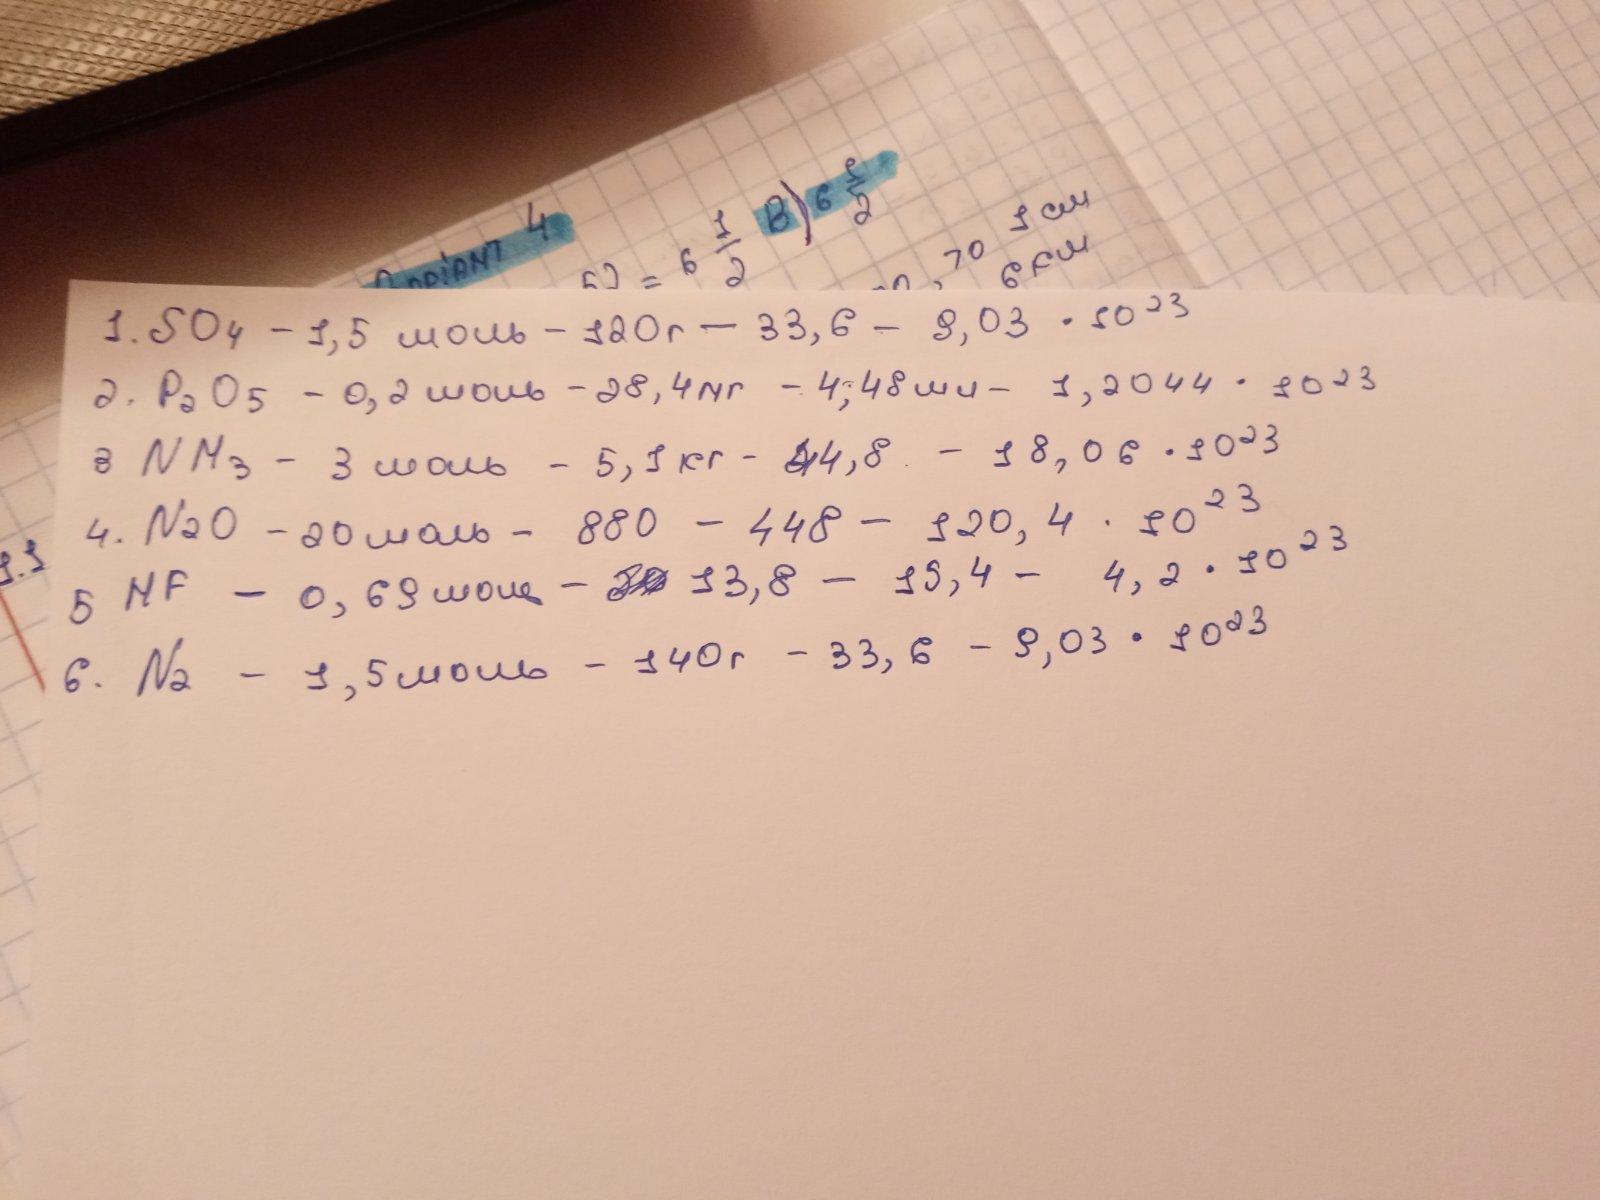 Варіант 4
6 1/2 В) 6 1/2
1 см
70
6 см
1. SO4 - 1,5 моль - 120г - 33,6 - 9,03 · 10²³
2. P2O5 - 0,2 моль - 28,4мг - 4,48мл - 1,2044 · 10²³
3 NH3 - 3 моль - 5,1кг - 44,8 - 18,06 · 10²³
4. N2O - 20 моль - 880 - 448 - 120,4 · 10²³
5 HF - 0,69 моль - 13,8 - 19,4 - 4,2 · 10²³
6. N2 - 1,5 моль - 140г - 33,6 - 9,03 · 10²³